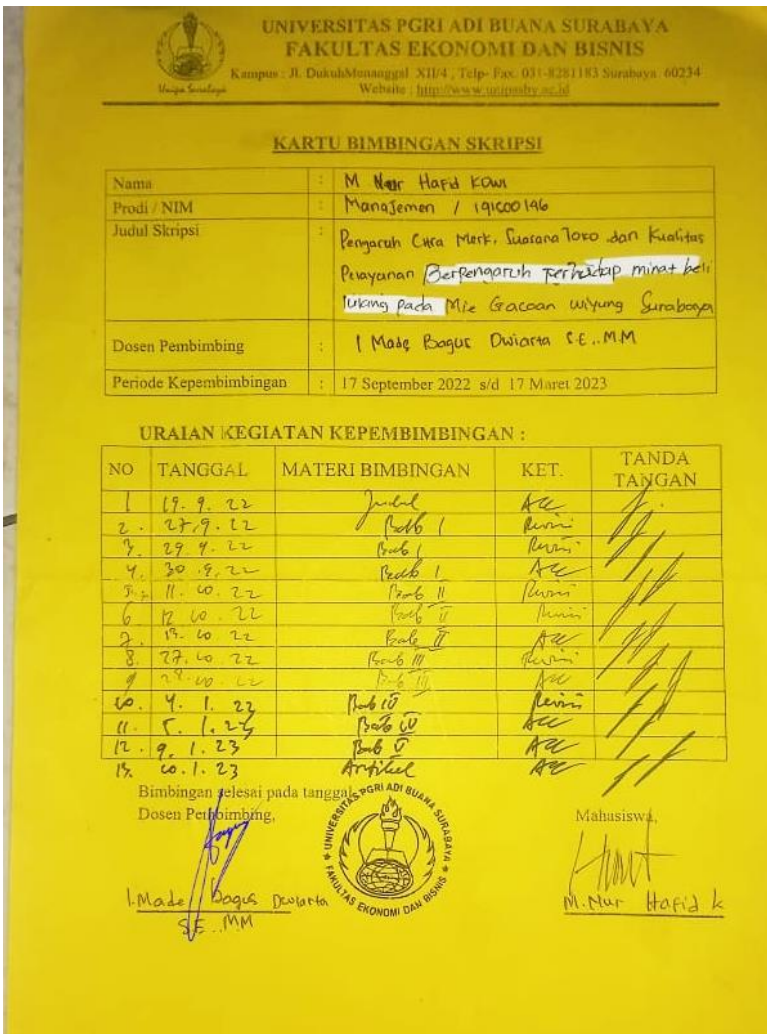 UNIVERSITAS PGRI ADI BUANA SURABAYA
FAKULTAS EKONOMI DAN BISNIS
Kampus : Jl. DukuhMenanggal XII/4 , Telp- Fax. 031-8281183 Surabaya 60234
Website : http://www.unipasby.ac.id
Unipa Surabaya
KARTU BIMBINGAN SKRIPSI
Nama : M Nur Hafid Kowi
Prodi / NIM : Manajemen / 191500196
Judul Skripsi : Pengaruh Citra Merk, Suasana Toko dan Kualitas
Pelayanan Berpengaruh terhadap minat beli
ulang pada Mie Gacoan Wiyung Surabaya
Dosen Pembimbing : I Made Bagus Dwiarta S.E., M.M
Periode Kepembimbingan : 17 September 2022 s/d 17 Maret 2023
URAIAN KEGIATAN KEPEMBIMBINGAN :
NO TANGGAL MATERI BIMBINGAN KET. TANDA TANGAN
1 19. 9. 22 Judul Acc
2. 27. 9. 22 Bab I Revisi
3. 29. 9. 22 Bab I Revisi
4. 30. 9. 22 Bab I Acc
5. 11. 10. 22 Bab II Revisi
6 12 10. 22 Bab II Revisi
7. 13. 10 22 Bab II Acc
8. 27. 10 22 Bab III Revisi
9 28. 10. 22 Bab III Acc
10. 4. 1. 23 Bab IV Revisi
11. 5. 1. 23 Bab IV Acc
12. 9. 1. 23 Bab V Acc
13. 10. 1. 23 Artikel Acc
Bimbingan selesai pada tanggal
Dosen Pembimbing,
Mahasiswa,
UNIVERSITAS PGRI ADI BUANA SURABAYA
FAKULTAS EKONOMI DAN BISNIS
I. Made Bagus Dwiarta
S.E., MM
M. Nur Hafid K